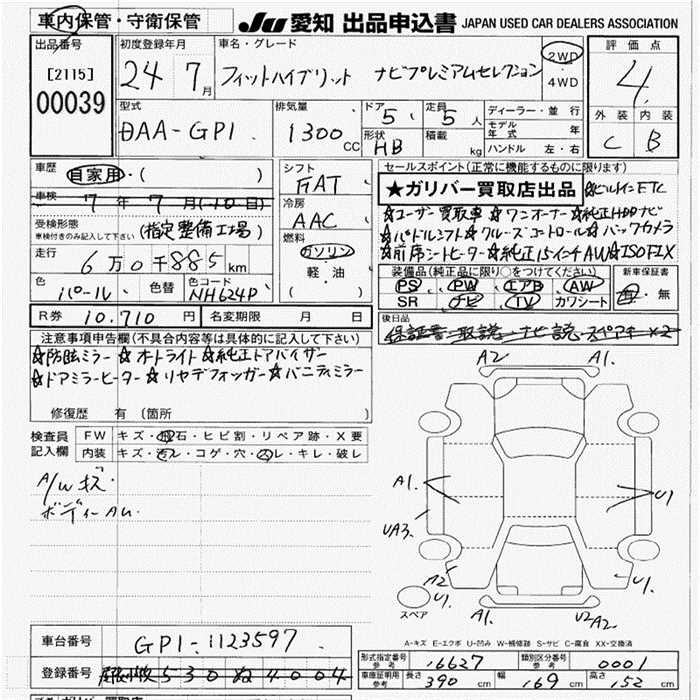 車内保管・守衛保管
JU 愛知 出品申込書 JAPAN USED CAR DEALERS ASSOCIATION
出品番号
[2115]
00039
初度登録年月
24 7月
車名・グレード
フィットハイブリット ナビプレミアムセレクション
2WD
・
4WD
評価点
4
外装 内装
C B
型式
DAA-GP1
排気量
1300cc
ドア 5
定員 5人
形状 HB
積載 kg
ディーラー・並行
モデル年式 年
ハンドル 左・右
車歴 自家用・( )
車検 7年7月(10日)
受検形態
車検付きのみ記入して下さい (指定整備工場)
走行 6万0千885km
色 パール 色替 色コード NH624P
シフト
FAT
冷房
AAC
燃料
ガソリン
・
軽・油
セールスポイント(正常に機能するものに限ります)
★ガリバー買取店出品 ☆ビルトインETC
☆ユーザー買取車 ☆ワンオーナー ☆純正HDDナビ
☆パドルシフト ☆クルーズコントロール ☆バックカメラ
☆前席シートヒーター ☆純正15インチAW ☆ISOFIX
装備品(純正品に限り○をつけてください)
PS PW エアB AW
SR ナビ TV カワシート
新車保証書
有・無
R券 10,710円 名変期限 月 日
後日品
保証書 取説 ナビ説 スペアキーx2
注意事項申告欄(不具合内容等は具体的に記入して下さい)
☆防眩ミラー ☆オートライト ☆純正ドアバイザー
☆ドアミラーヒーター ☆リヤデフォッガー ☆バニティミラー
修復歴 有 (箇所 )
検査員
記入欄
FW キズ・飛石・ヒビ割・リペア跡・X要
内装 キズ・汚レ・コゲ・穴・スレ・キレ・破レ
A/Wキズ
ボディーAU
A2 A1.
A1.
UA3.
U1
A2
U1
U1.
A1
U2
A2
スペア
A-キズ E-エクボ U-凹み W-補修跡 S-サビ C-腐食 XX-交換済
車台番号 GP1-1123597
登録番号 530 ぬ 4004
型式指定番号 参考 16627 類別区分番号 参考 0001
車庫証明用 参考 長さ 390cm 幅 169cm 高さ 152cm